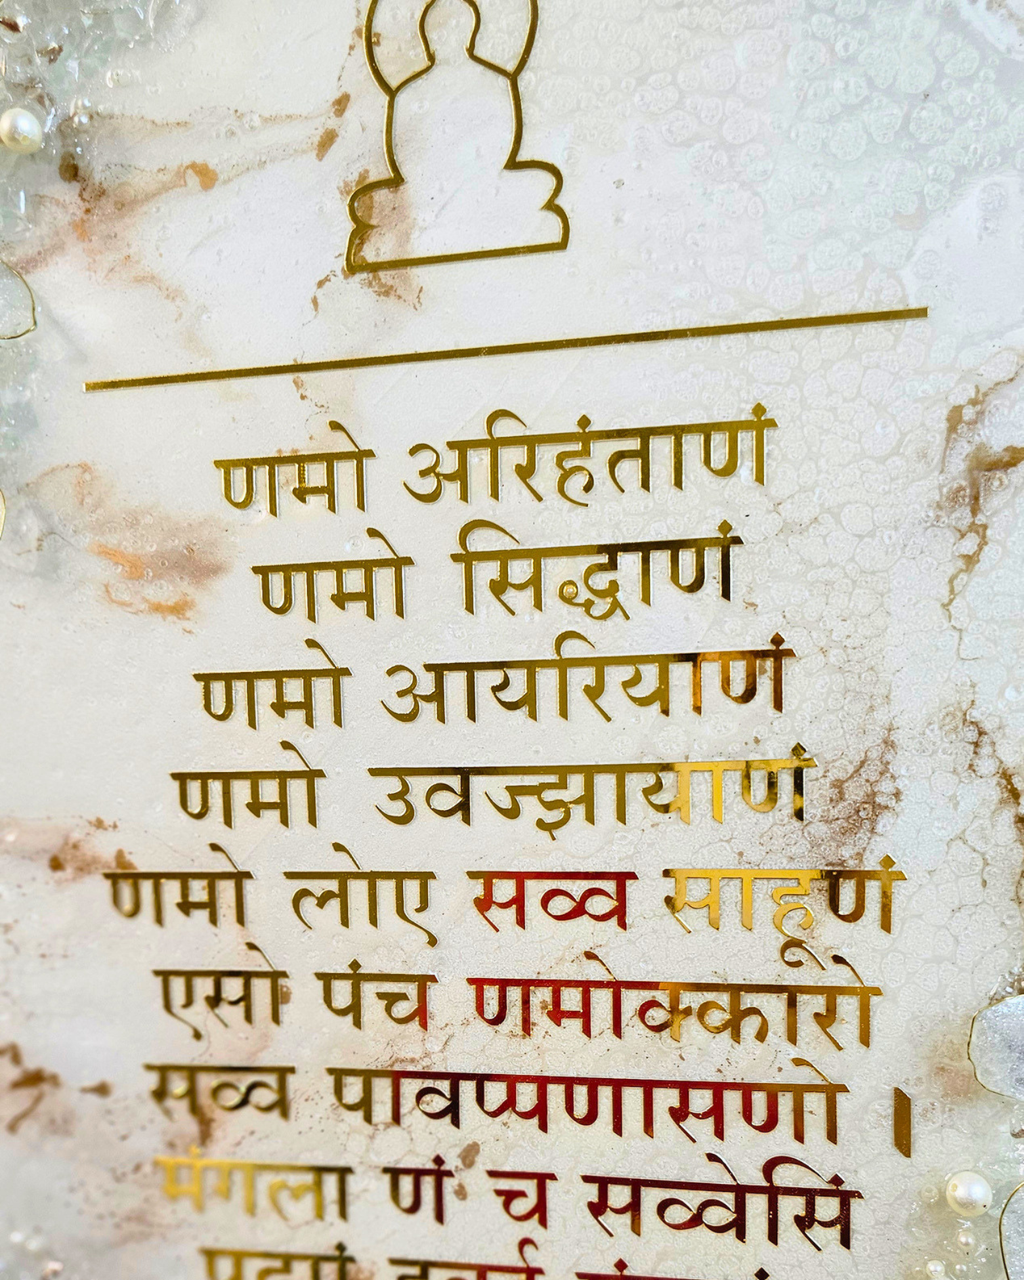 णमो अरिहंताणं
णमो सिद्धाणं
णमो आयरियाणं
णमो उवज्झायाणं
णमो लोए सव्व साहूणं
एसो पंच णमोक्कारो
सव्व पावप्पणासणो ।
मंगला णं च सव्वेसिं